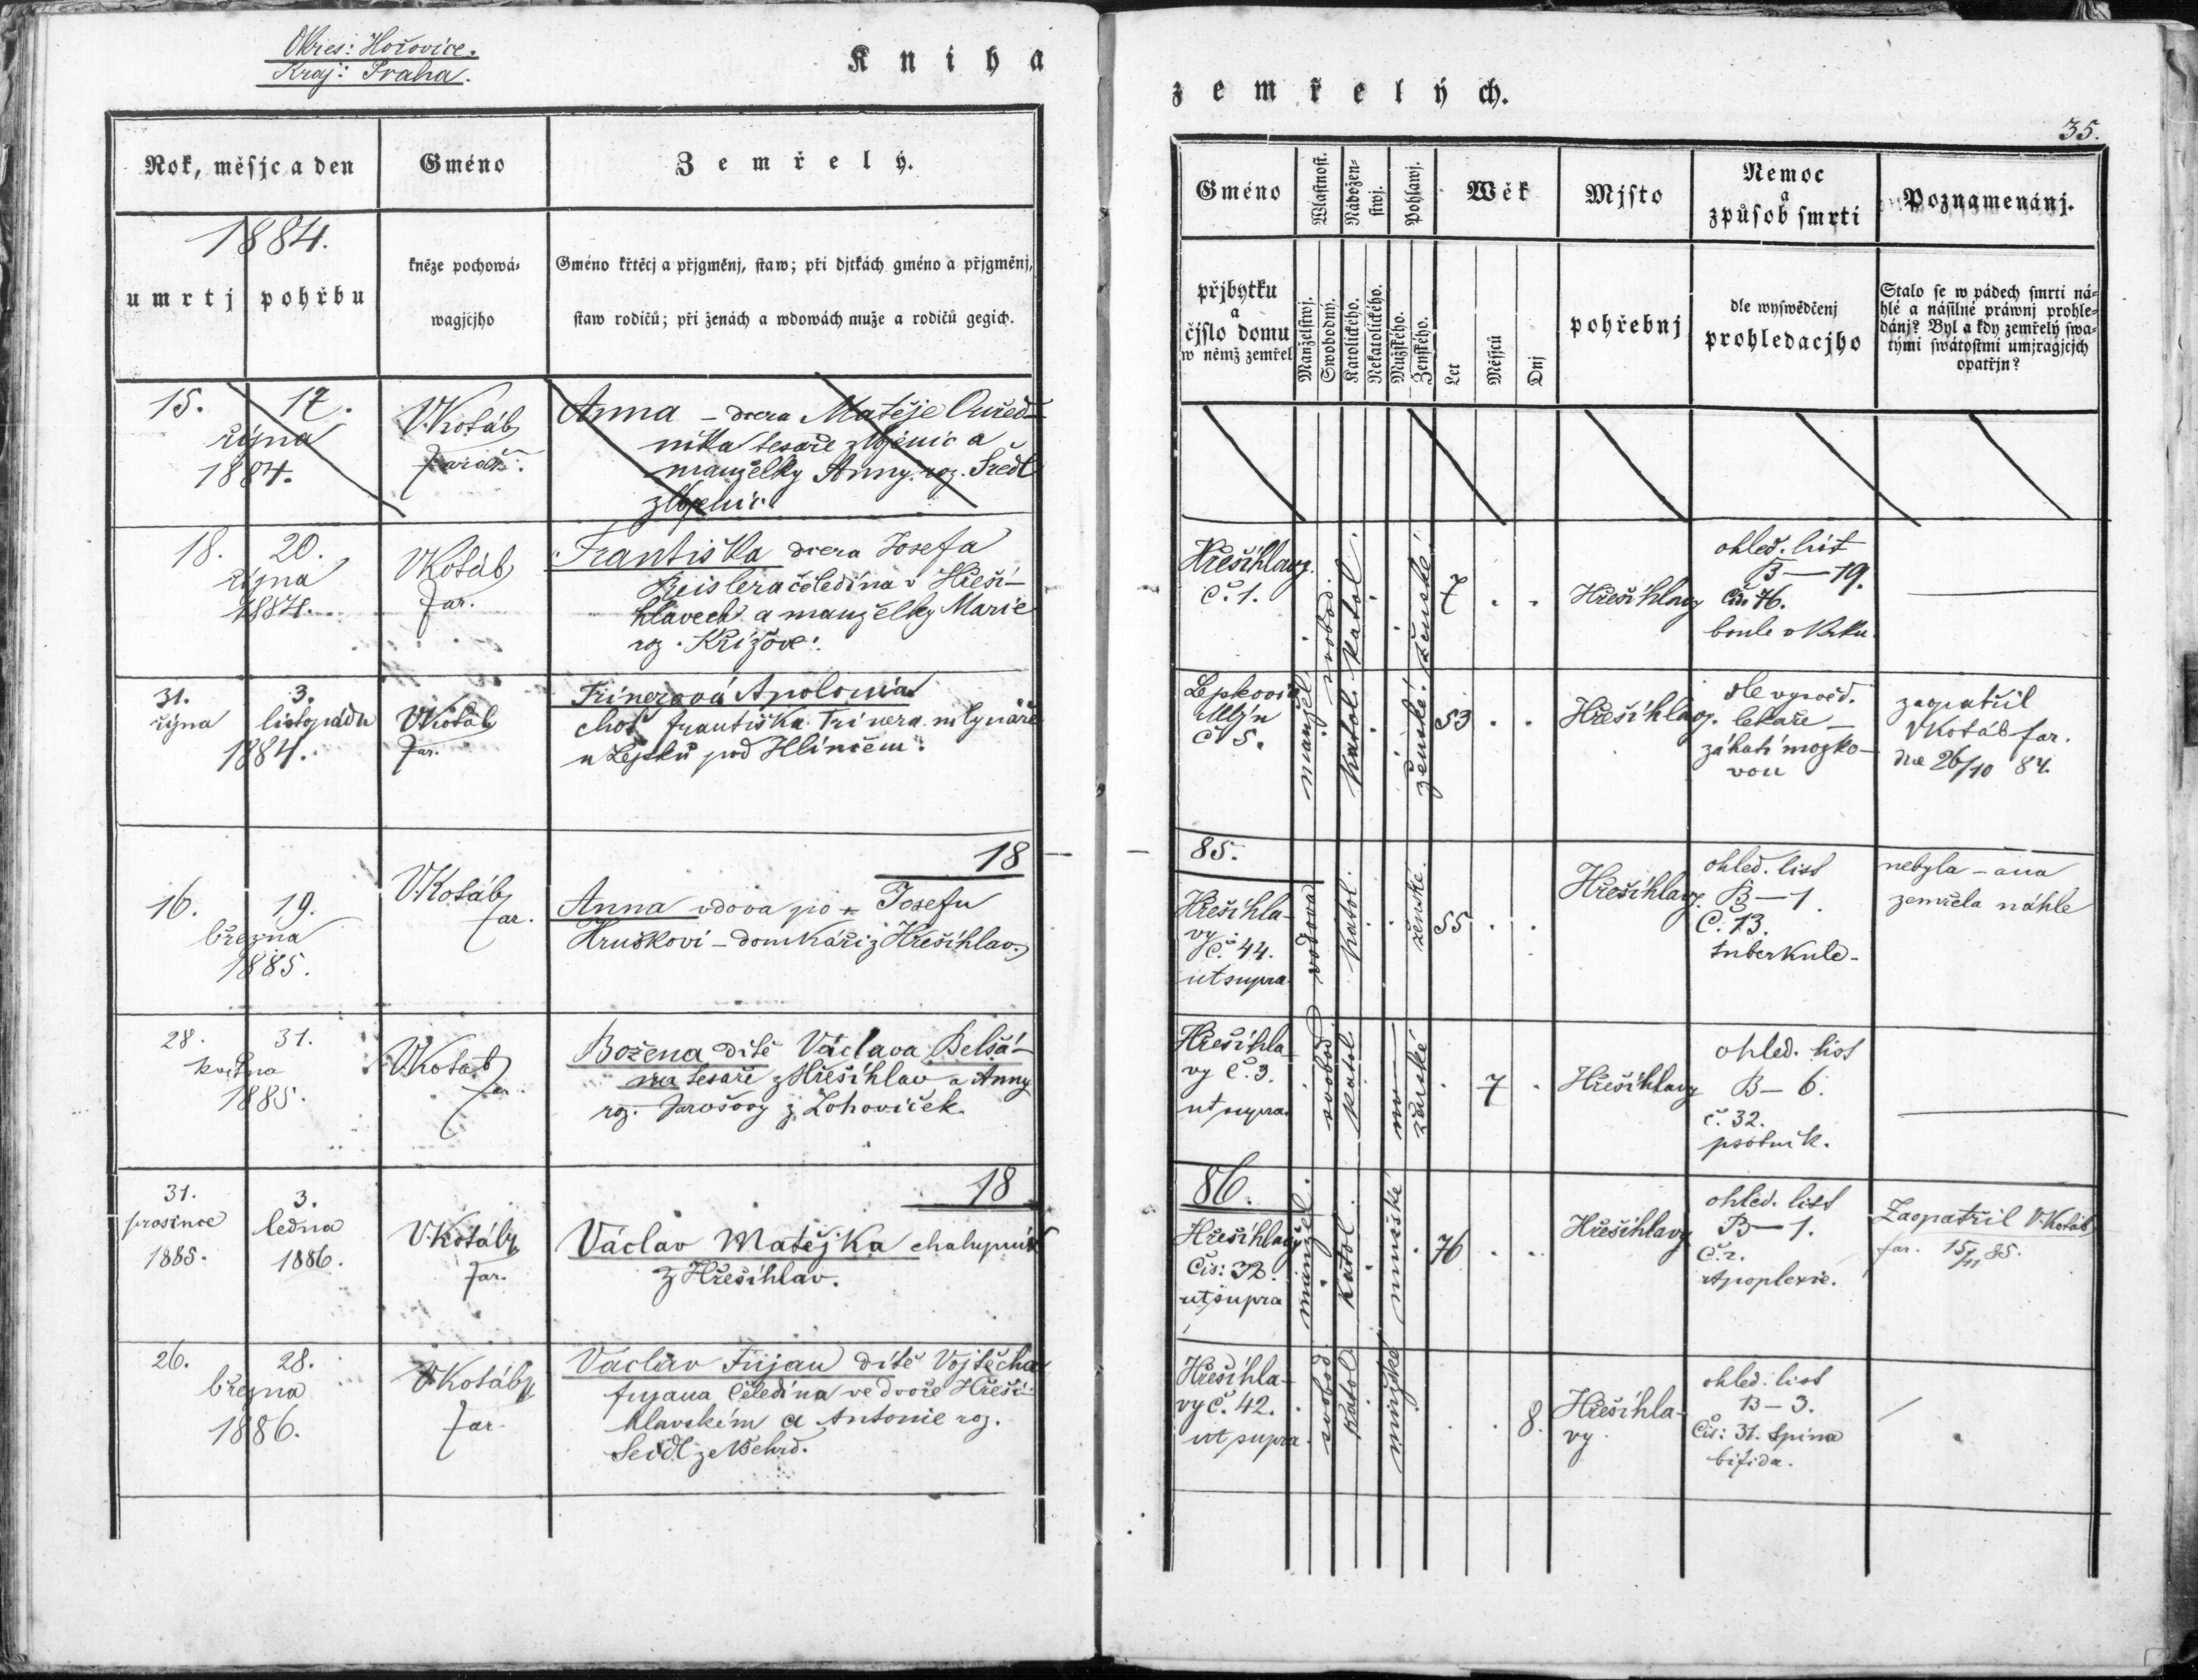 Okres: Hořovice.
Kraj: Praha.
Kniha
Rok, měsjc a den
Gméno
Zemřelý.
1884.
umrtj
pohřbu
kněze pochowá-
wagjcjho
Gméno křtěcj a přjgměnj, staw; při djtkách gméno a přjgměnj,
staw rodičů; při ženách a wdowách muže a rodičů gegich.
15. 17.
října
1884.
V.Kotáb
farář.
Anna – dcera Matěje Ouřed-
níka tesaře z a
manželky Anny roz. Šedl
18. 20.
října
1884.
VKotáb
far.
Františka dcera Josefa
Reislera čeledína v Hřeši-
hlavech a manželky Marie
roz. Křížové.
31. 3.
října listopadu
1884.
VKotáb
far.
Trinerová Apolonia
choť Františka Trinera mlynáře
u Lepků pod Hlinčem.
18
16. 19.
března
1885.
V.Kotáb
far.
Anna vdova po Josefu
Hruškovi – domkáři z Hřešihlav.
28. 31.
května
1885.
VKotáb
far.
Božena dítě Václava Belšá-
na tesaře z Hřešihlav a Anny
roz. Jarošovy z Lohoviček.
18
31. 3.
prosince ledna
1885. 1886.
V.Kotáb
far.
Václav Matějka chalupník
z Hřešihlav.
26. 28.
března
1886.
VKotáb
far.
Václav Fujan dítě Vojtěcha
Fujana čeledína ve dvoře Hřeši-
hlavském a Antonie roz.
Seidl ze Všehrd.
zemřelých.
35.
Gméno
Wlastnost.
Nábožen-
stwj.
Pohlawj.
Wěk
Mjsto
Nemoc
a
způsob smrti
Poznamenánj.
přjbytku
a
čjslo domu
w němž zemřel
Manželstwj.
Swobodný.
Katolického.
Nekatolického.
Mužského.
Ženského.
Let
Měsjců
Dnj
pohřebnj
dle wyswědčenj
prohledacjho
Stalo se w pádech smrti ná-
hlé a násilné práwnj prohle-
dánj? Byl a kdy zemřelý swa-
tými swátostmi umjragjcjch
opatřjn?
Hřešihlavy
č. 1.
svobod.
katol.
ženské.
7
Hřešihlavy
ohled. list
B – 19.
Čís. 76.
boule v krku.
Lepkovic
Mlýn
č 5.
manžel.
katol.
ženské.
53
Hřešihlavy.
dle vysvěd.
lekaře –
zákatí mozko-
vou
zaopatřil
VKotáb far.
dne 26/10 84.
85.
Hřešihla-
vy
Č. 44.
ut supra
vdova
katol.
ženské.
55
Hřešihlavy.
ohled. list
B – 1.
Č. 13.
tuberkule.
nebyla – ana
zemřela náhle
Hřešihla-
vy č. 3.
ut supra
svobod.
katol.
ženské
7
Hřešihlavy
ohled. list
B – 6.
č. 32.
psotník.
86.
Hřešihlavy
Čís: 32.
ut supra
manžel.
katol.
mužské
76
Hřešihlavy
ohled. list
B – 1.
Č. 2.
Apoplexie.
Zaopatřil V.Kotáb
far. 15/11 85.
Hřešihla-
vy č. 42.
ut supra
svobod.
katol.
mužské
8.
Hřešihla-
vy
ohled. list
B – 3.
Čís: 31. Spina
bifida.